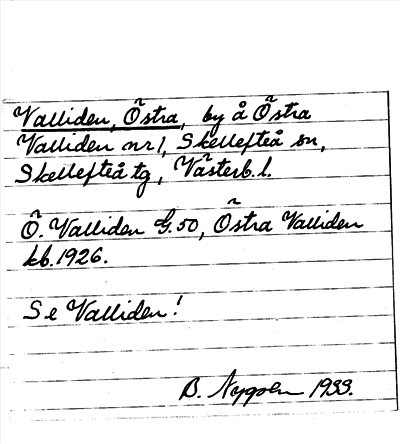 Valliden, Östra, by å Östra
Valliden nr 1, Skellefteå sn,
Skellefteå tg, Västerb. l.
Ö. Valliden G. 50, Östra Valliden
kb. 1926.
Se Valliden!
B. 1933.